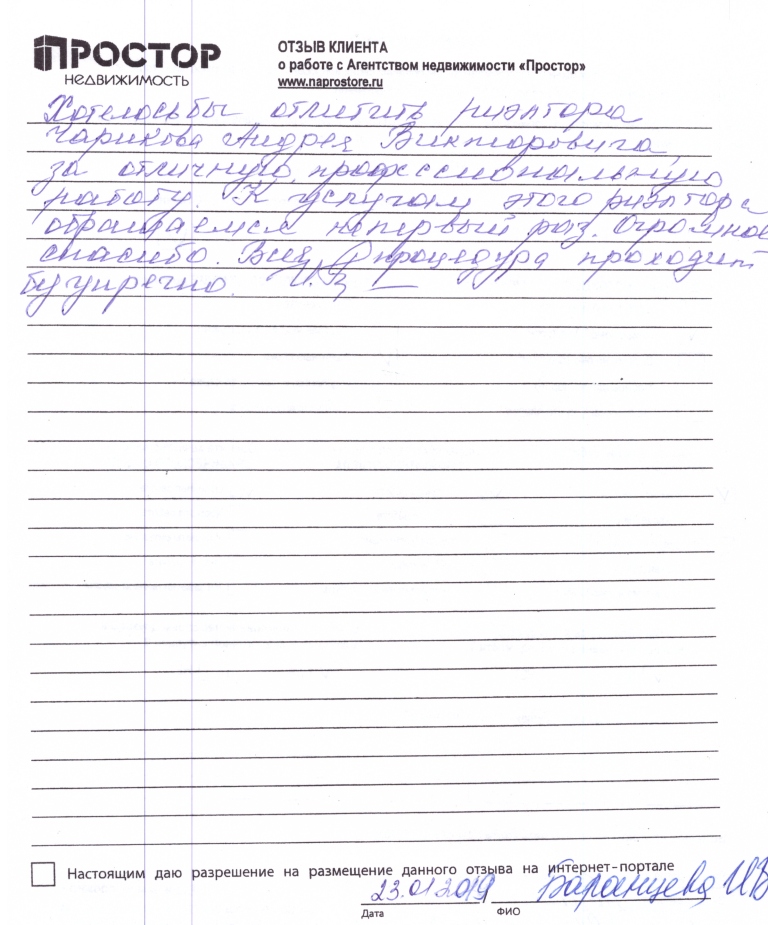 ПРОСТОР
НЕДВИЖИМОСТЬ
ОТЗЫВ КЛИЕНТА
о работе с Агентством недвижимости «Простор»
www.naprostore.ru
Хотелось бы отметить риэлтора
Чарикова Андрея Викторовича,
за отличную, профессиональную
работу. К услугам этого риэлтора
обращаемся не первый раз. Огромное
спасибо. Вся процедура проходит
безупречно.
Настоящим даю разрешение на размещение данного отзыва на интернет-портале
23.01.2019 Баранцева ИВ
Дата ФИО